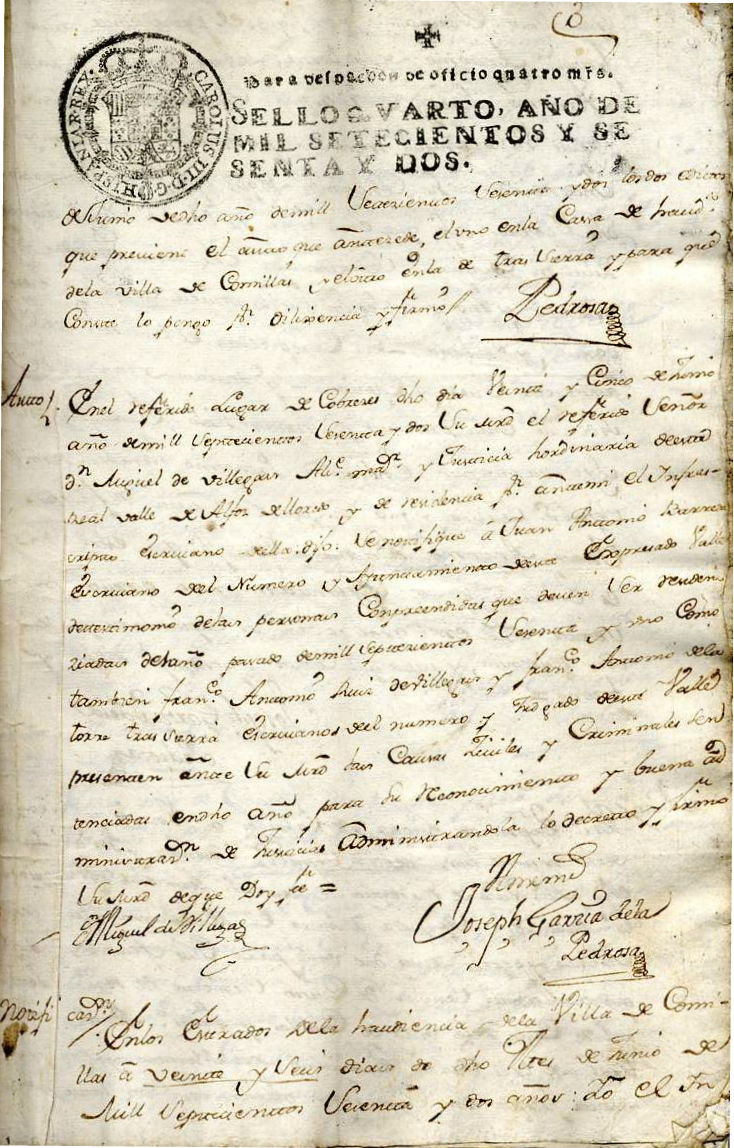 8
CAROLUS III D. G. HISPANIAR REX.
Para despachos de oficio quatro mrs.
SELLO QVARTO, AÑO DE
MIL SETECIENTOS Y SE
SENTA Y DOS.
de Junio de dho año de mill Setezientos Sesenta y dos los dos
que previene el auto que antezede, el uno en la Cassa de haud.ª
de la Villa de Comillas y el otro en la de tras sierra y para que
Conste lo pongo pr. dilixencia y firmo
Pedrosa
Auto
En el referido Lugar de Cobreces dho dia Veinte y Cinco de Junio
año de mill Septecientos Sesenta y dos Su mrd el referido Señor
dn Miguel de Villegas Alce. maor. y Justicia hordinaria deeste
Real Valle de Alfoz de lloredo y de residencia pr. antemi el Infras-
cripto escrivano della: dijo: se notifique â Juan Antonio Barreda
escrivano del Numero y Ayuntamiento deeste Expresado Valle
de testimonio delas personas Conpreendidas que deven ser residen
ziadas del año pasado de mill septezientos Sesenta y uno Como
tambien franco. Antonio Ruiz de Villegas y franco. Antonio de la
torre tras sierra escrivanos del numero y Juzgado deeste Valle
presenten ante Su mrd las Causas Ziviles y Criminales Sen
tenciadas en dho año para su reconocimiento y buena ad
ministrazn. de Justicia Administrandola lo decreto y firmo
Su mrd de que Doy fe =
Miguel de Villegas
Antemi
Joseph Garcia de la
Pedrosa
Notifi
cazn.
En los Estrados de la haudiencia de la Villa de Comi-
llas â veinte y seis dias de dho Mes de Junio de
Mill Septecientos Sesenta y dos años: Yo el In